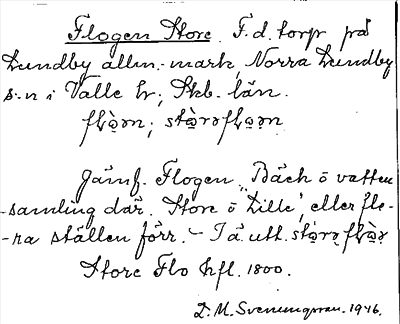 Flogen Store. F.d. torp på
Lundby allm.-mark, Norra Lundby
s:n i Valle hr; Skb. län.
Jämf. Flogen, "Bäck o vatten
-samling där. Store o Lille", eller fle-
-ra ställen förr. – I ä. utt.
Store Flo hfl. 1800.
D. M. Svenungsson. 1946.